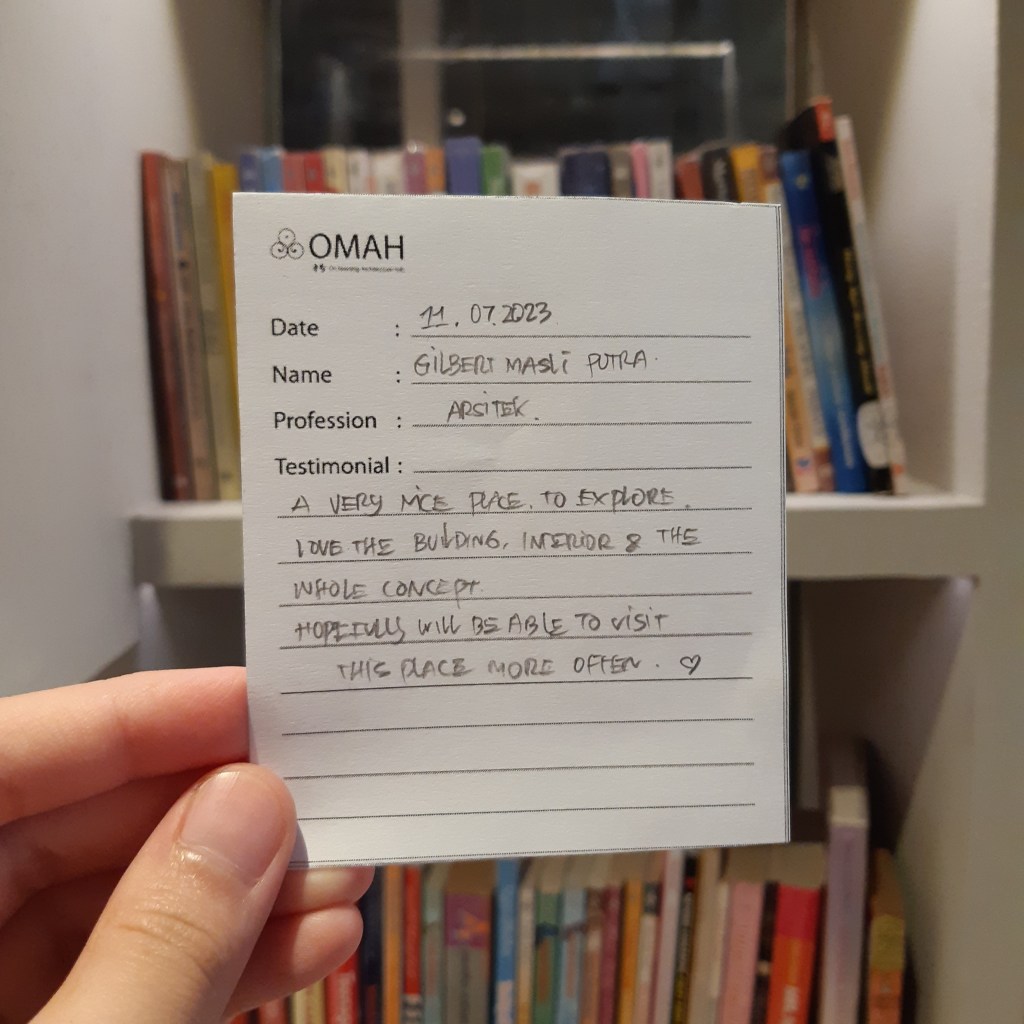 OMAH
Date : 11.07.2023
Name : GILBERT MASLI PUTRA.
Profession : ARSITEK.
Testimonial :
A VERY NICE PLACE. TO EXPLORE.
LOVE THE BUILDING, INTERIOR & THE
WHOLE CONCEPT.
HOPEFULLY WILL BE ABLE TO VISIT
THIS PLACE MORE OFTEN. ♡